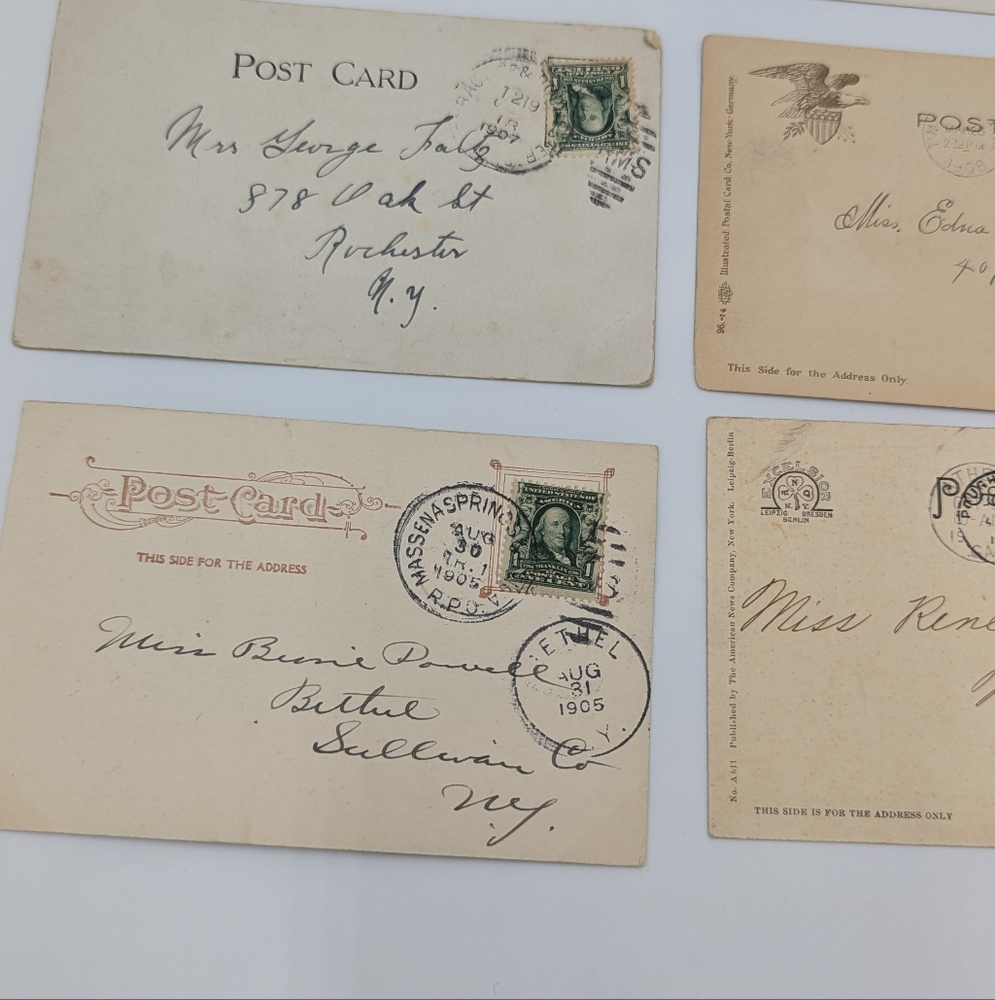 POST CARD
1219
1907
Mrs George
878 Oak St
Rochester
N.Y.
Illustrated Postal Card Co. New York - Germany.
96.-74
POST
1908
Miss. Edna
401
This Side for the Address Only.
Post Card
THIS SIDE FOR THE ADDRESS
MASSENA SPRING
AUG
30
TR. 1
1905
R.P.O.
UNITED STATES OF
1 FRANKLIN 1
POSTAGE
ONE CENT
ETHEL
AUG
31
1905
Y.
Miss Bessie Powell
Bethel
Sullivan Co
N.Y.
Published by The American News Company, New York. Leipzig-Berlin
No. A 611
EXCELSIOR
A N C
N.Y.
LEIPZIG DRESDEN
BERLIN
Miss Rene
THIS SIDE IS FOR THE ADDRESS ONLY